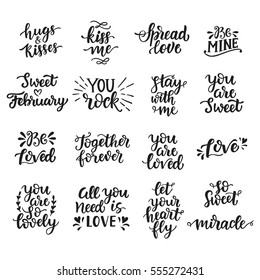 hugs
& kisses
kiss
me
Spread
love
Be
MINE
Sweet
February
YOU
ROCK
Stay
with
me
you
are
Sweet
Be
Loved
Together
forever
you
are
loved
Love
you
are
so
lovely
All you
need is
LOVE
let
your
heart
fly
so
Sweet
miracle
shutterstock
IMAGE ID: 555272431
www.shutterstock.com